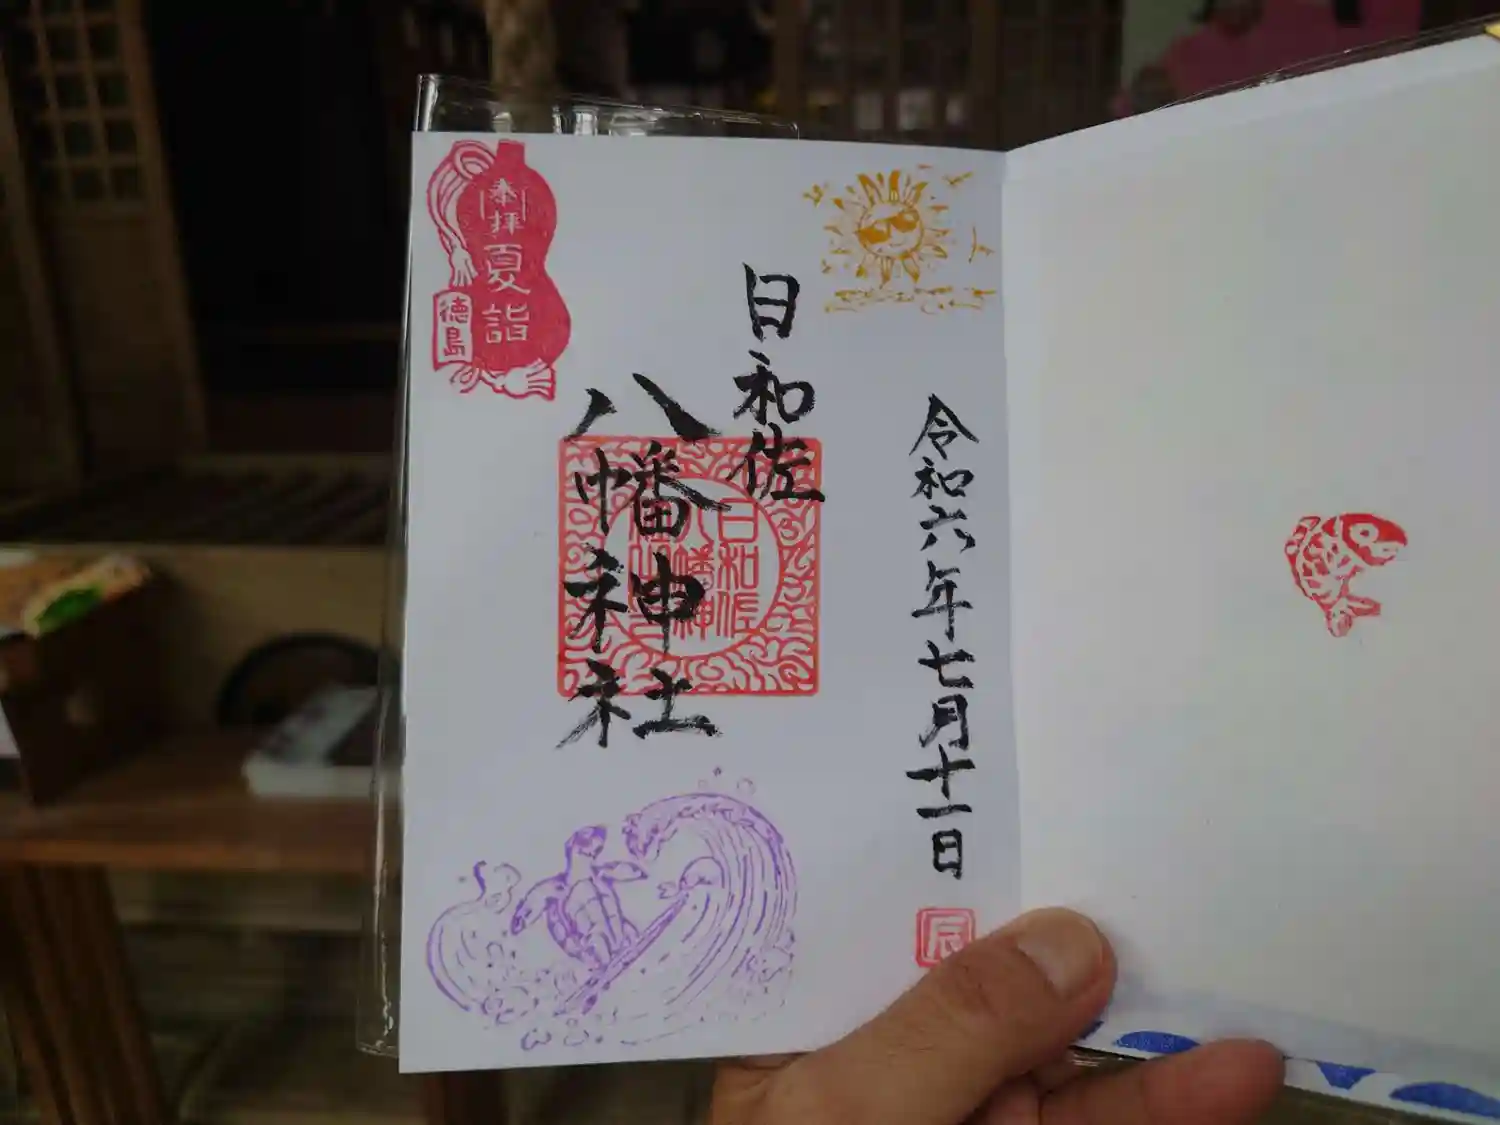 令和六年七月十一日
辰
日和佐
八幡神社
日和佐
八幡神
奉拝
夏詣
徳島